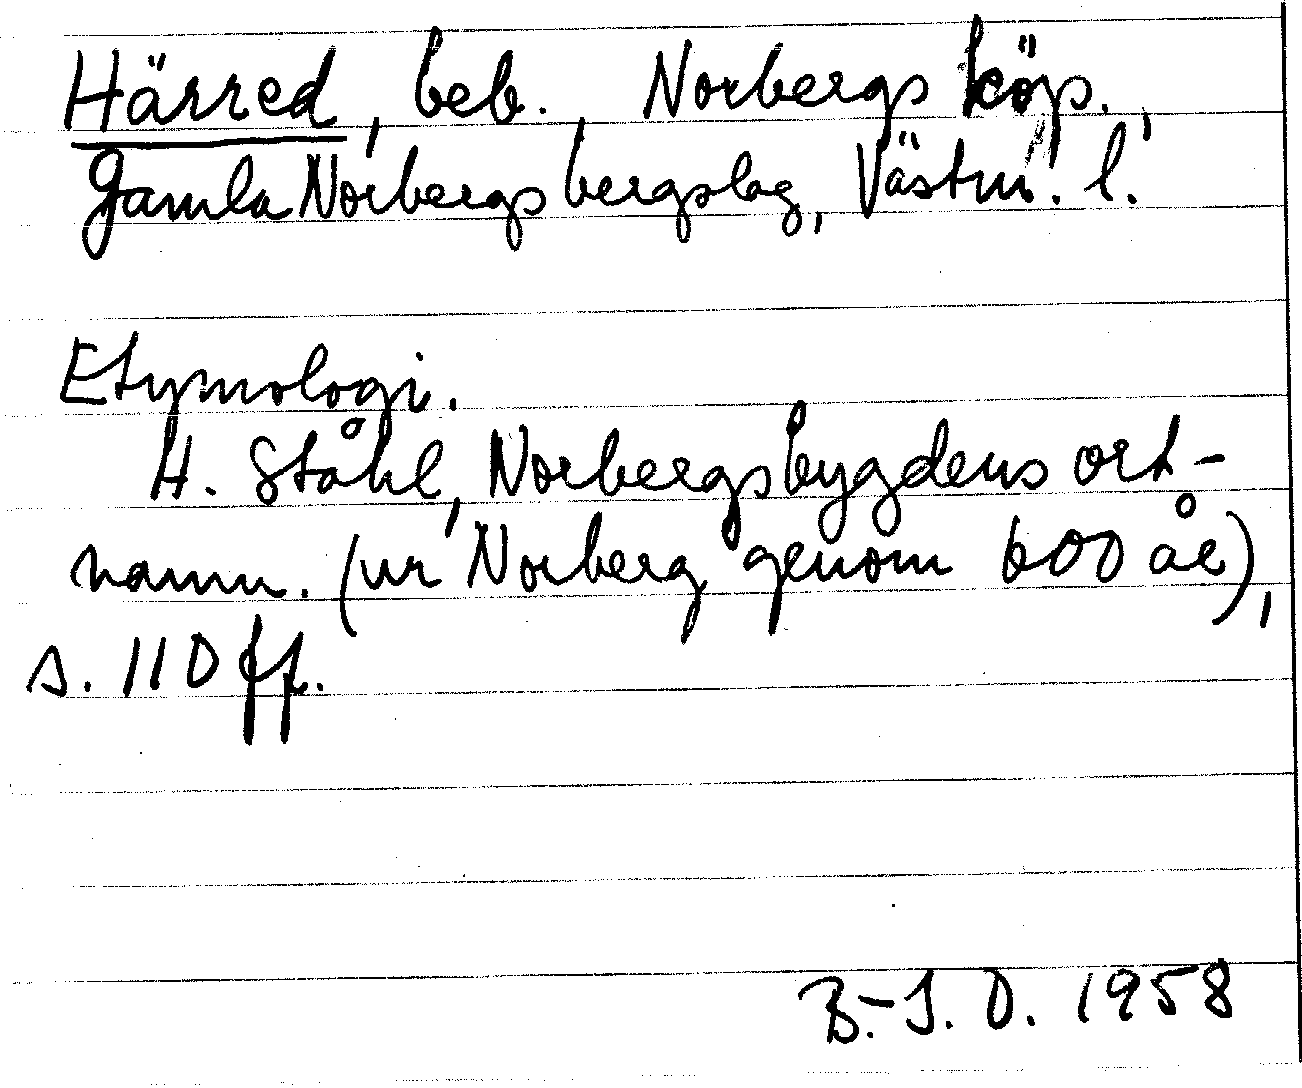 Härred, beb., Norbergs köp.,
Gamla Norbergs bergslag, Västm. l.
Etymologi.
H. Ståhl, Norbergsbygdens ort-
namn. (ur Norberg genom 600 år),
s. 110 ff.
B.-J. O. 1958